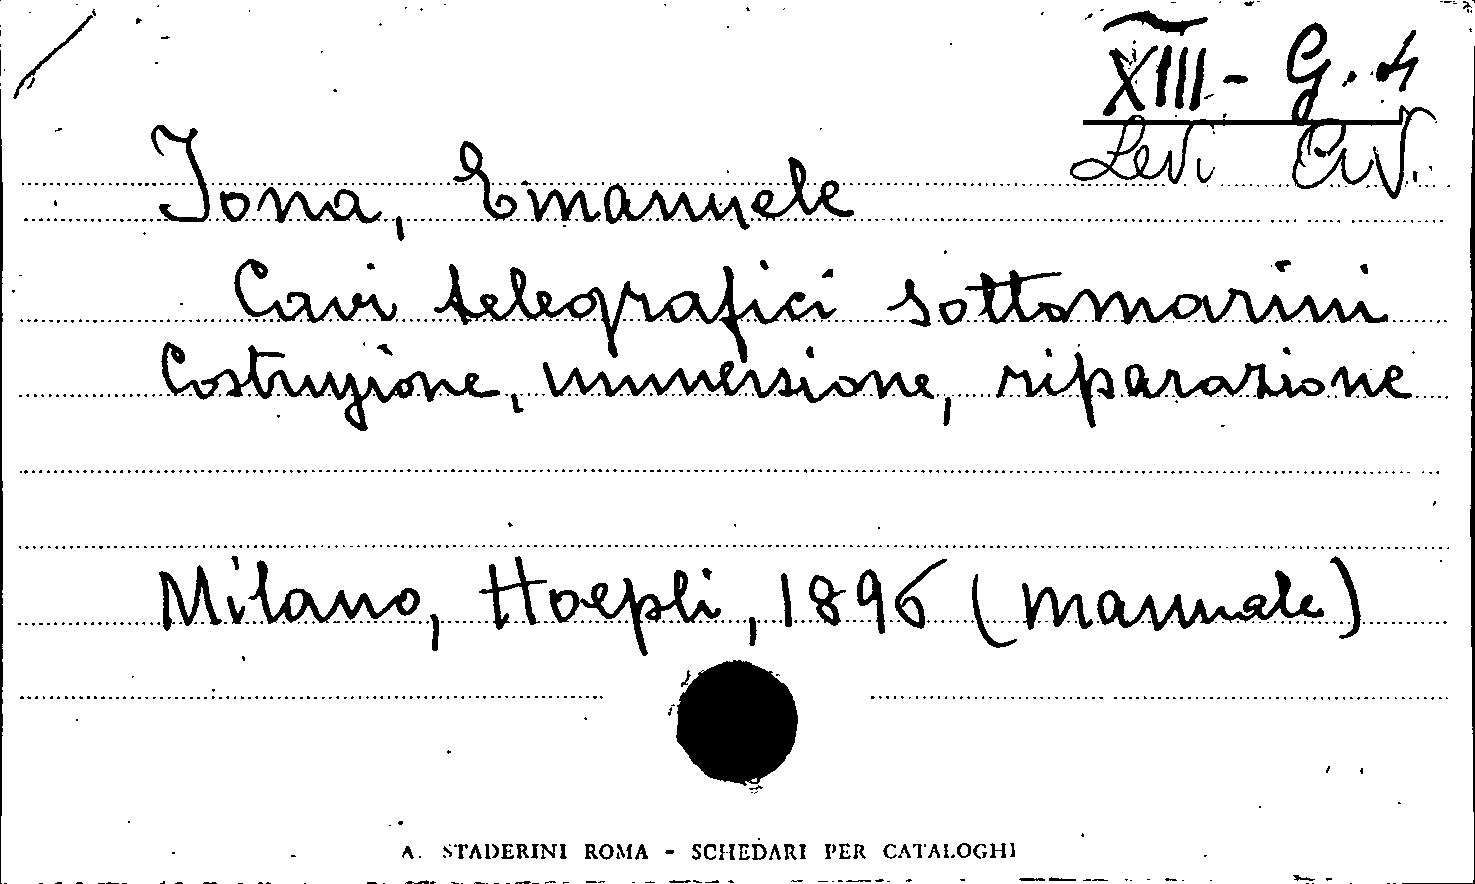 XIII - G. 4
Levi Civ.
Jona, Emanuele
Cavi telegrafici sottomarini
Costruzione, immersione, riparazione
Milano, Hoepli, 1896 (Manuale)
A. STADERINI ROMA - SCHEDARI PER CATALOGHI